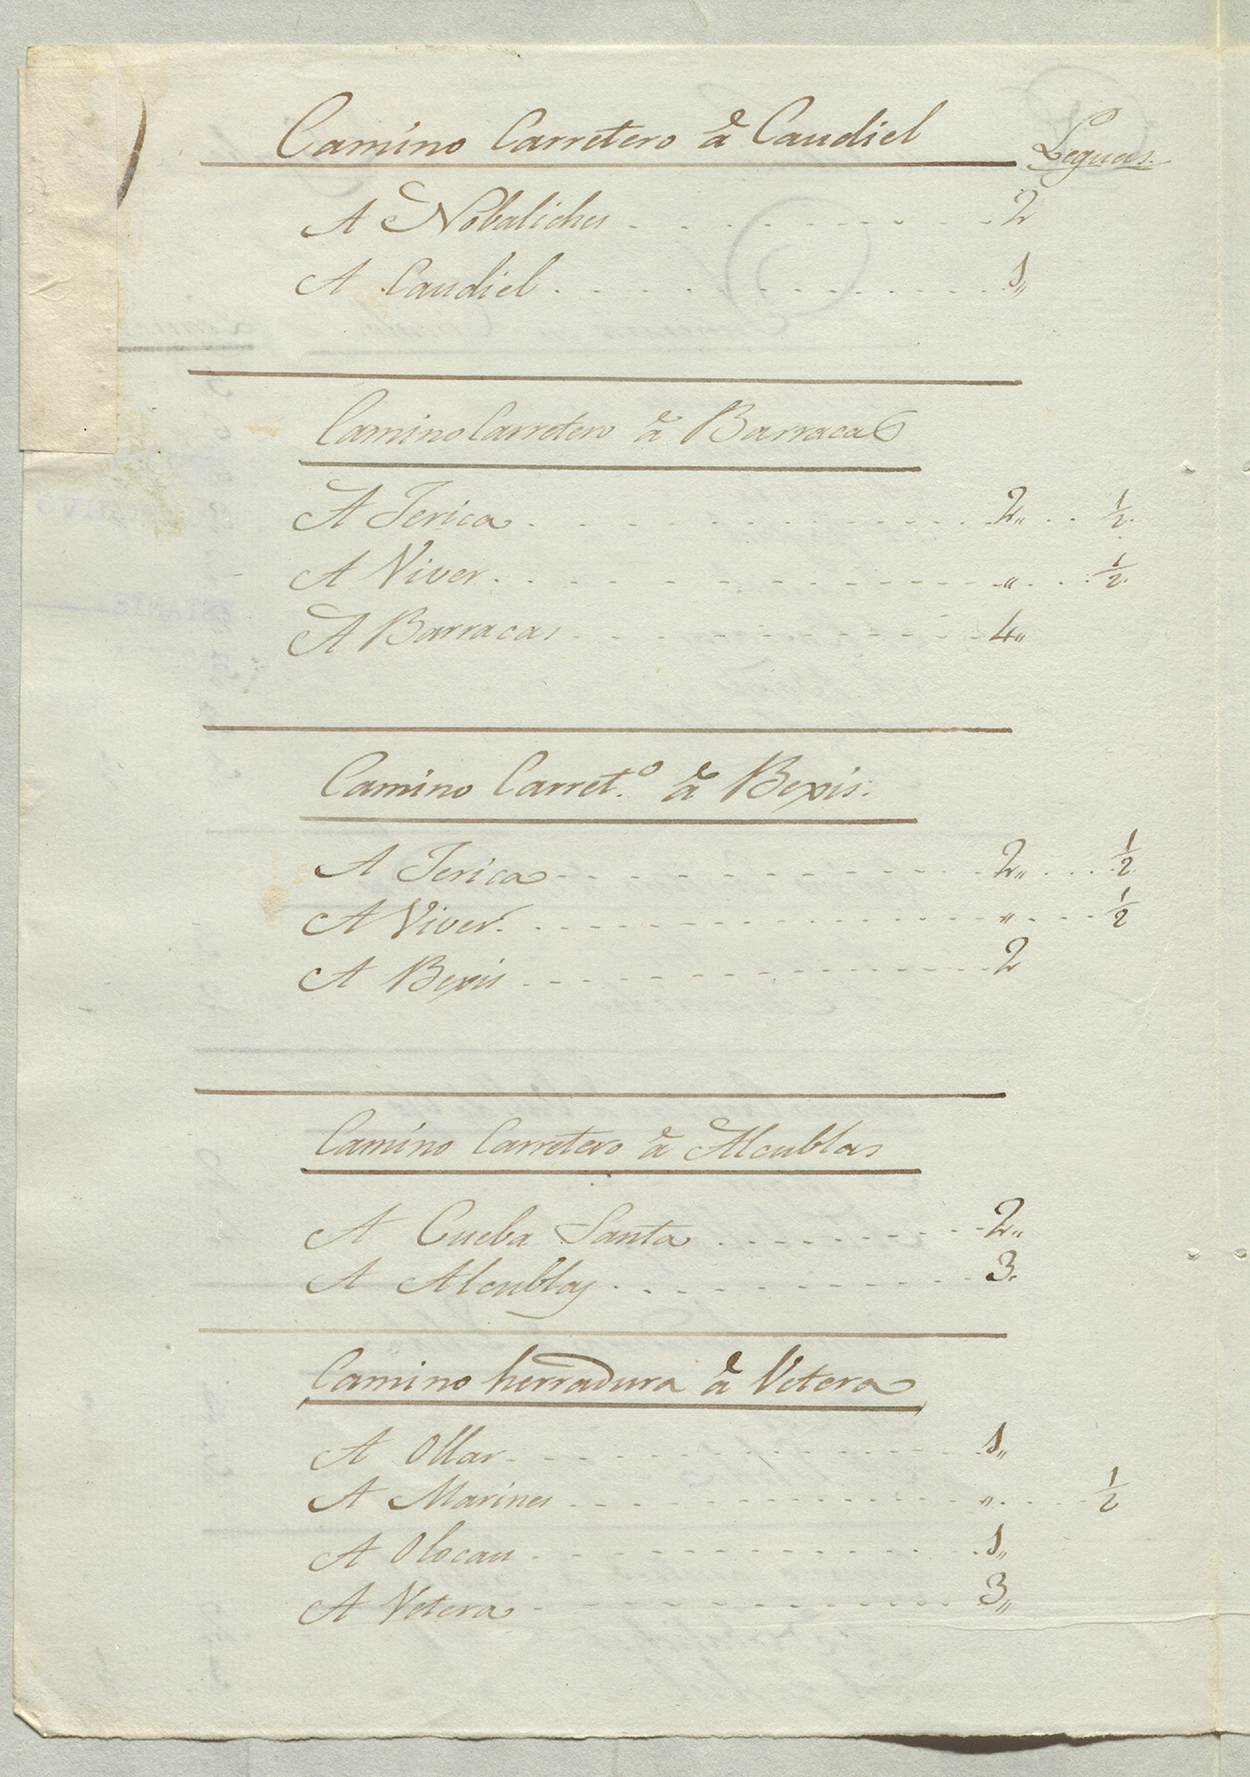 Camino Carretero à Caudiel Leguas.
A Nobaliches . . . . . . . . . . 2
A Caudiel . . . . . . . . . . . 1,,
Camino Carretero à Barracas
A Jerica . . . . . . . . . . . . 2,, . . 1/2.
A Viver . . . . . . . . . . . . ,, . . 1/2.
A Barracas . . . . . . . . . . . 4,,
Camino Carret.º à Bexis.
A Jerica . . . . . . . . . . . . 2,, . . . 1/2
A Viver . . . . . . . . . . . . ,, . . . 1/2
A Bexis . . . . . . . . . . . . 2
Camino Carretero à Alcublas
A Cueba Santa . . . . . . . . 2,,
A Alcublas . . . . . . . . . . 3.
Camino herradura à Vetera
A Ollar . . . . . . . . . . . . 1,,
A Marines . . . . . . . . . . . ,, . . . 1/2
A Olocau . . . . . . . . . . . 1,,
A Vetera . . . . . . . . . . . 3,,